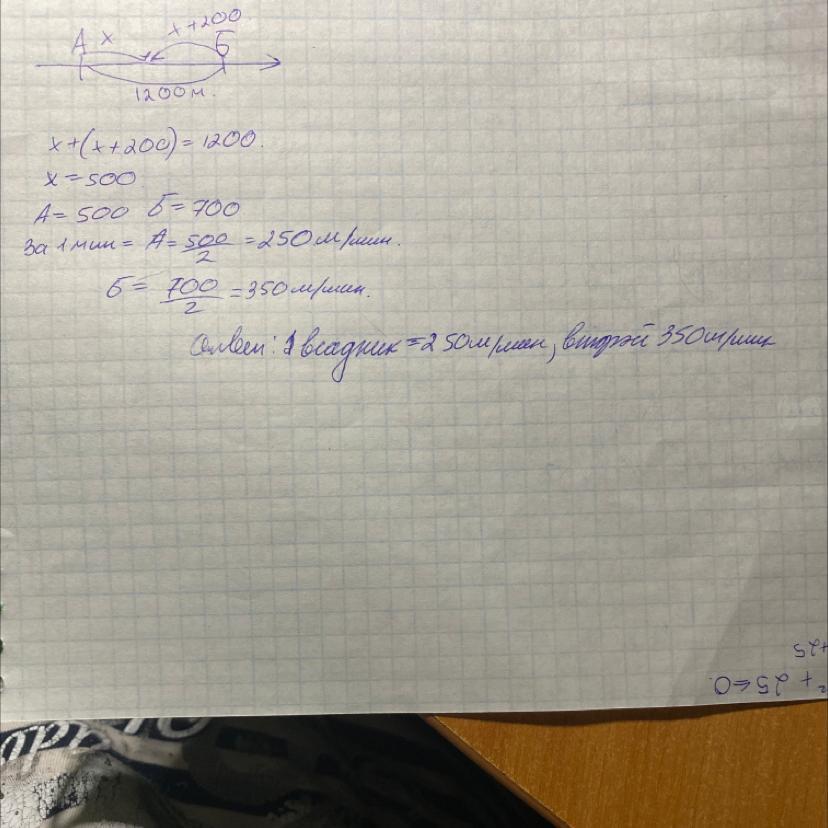 x+200
A x Б
1200м.
x+(x+200)=1200.
x=500.
A=500 Б=700
За 1 мин= A= 500/2 =250м/мин.
Б= 700/2 =350м/мин.
Ответ: 1 всадник=250м/мин, второй 350м/мин
+25
²+25=0.